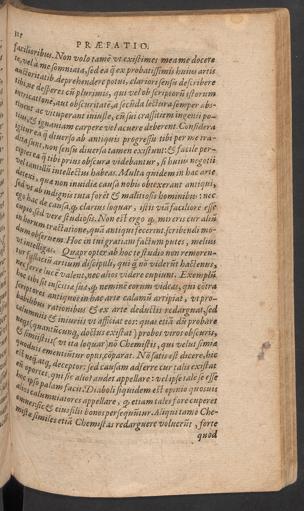 PRÆFATIO.
facilioribus. Non volo tamē vt existimes mea me docere
te, vel à me somniata, sed ea q̃ ex probatissimis huius artis
auctoritatib. deprehendere potui, clariori sensu describere
tibi ne desperes cū plurimis, qui vel ob scriptorū istorum
aut obscuritatē, à secūda lectura semper abs-
& vituperant iniuste, cū sui crassitiem ingenij po-
tius, & ignauiam carpere vel acuere deberent. Considera
igitur ea q̃ diuerso ab antiquis progressu tibi per me tra-
dita sunt, non sensu diuersa tamen existunt: & facile per-
cipies ea q̃ tibi prius obscura videbantur, si huius negotij
vel intellectus habeas. Multa quidem in hac arte
detexi, quæ non inuidiæ causa nobis obtexerant antiqui,
sed vt ab indignis tuta foret & malitiosis hominibus: nec
ego hac de causa, q̃ clarius loquar, istis vsū faciliorē esse
cupio, sed vere studiosis. Non est ergo q̃ mireris cur aliū
in horum tractatione, quā antiqui fecerint, scribendi mo-
dum obseruem. Hoc in tui gratiam factum putes, melius
vt intelligas. Quapropter ab hoc te studio non remoren-
tur fallaciū artium discipuli, qui q̃ nō viderūt hactenus,
nec ferre lucē valent, nec alios videre cupiunt. Exemplū
hoc tibi sit inscitiæ suæ, q̃ neminē eorum videas, qui cōtra
scriptores antiquos in hac arte calamū arripiat, vt pro-
babilibus rationibus & ex arte deductis redarguat, sed
calumnijs & iniurijs vt afficiat eos: quas etiā cū probare
docti existāt) probos viros obscuris,
& vt ita loquar nō Chemistis, qui velut simiæ
quoduis ementiūtur opus, cōparāt. Nō satis est dicere, hic
est nequā, deceptor: sed causam adferre cur talis existat
oportet, qui sic alios audet appellare: vel ipse talis esse
ipso palam facit. Diaboli siquidem est opinio quosuis
alios calumniatores appellare, q̃ etiam tales fore cuperet
omnes: sic & eius filij bonos persequūtur. Aliqui tamē Che-
mistæ similes etiā Chemistas redarguere voluerūt, forte
quod